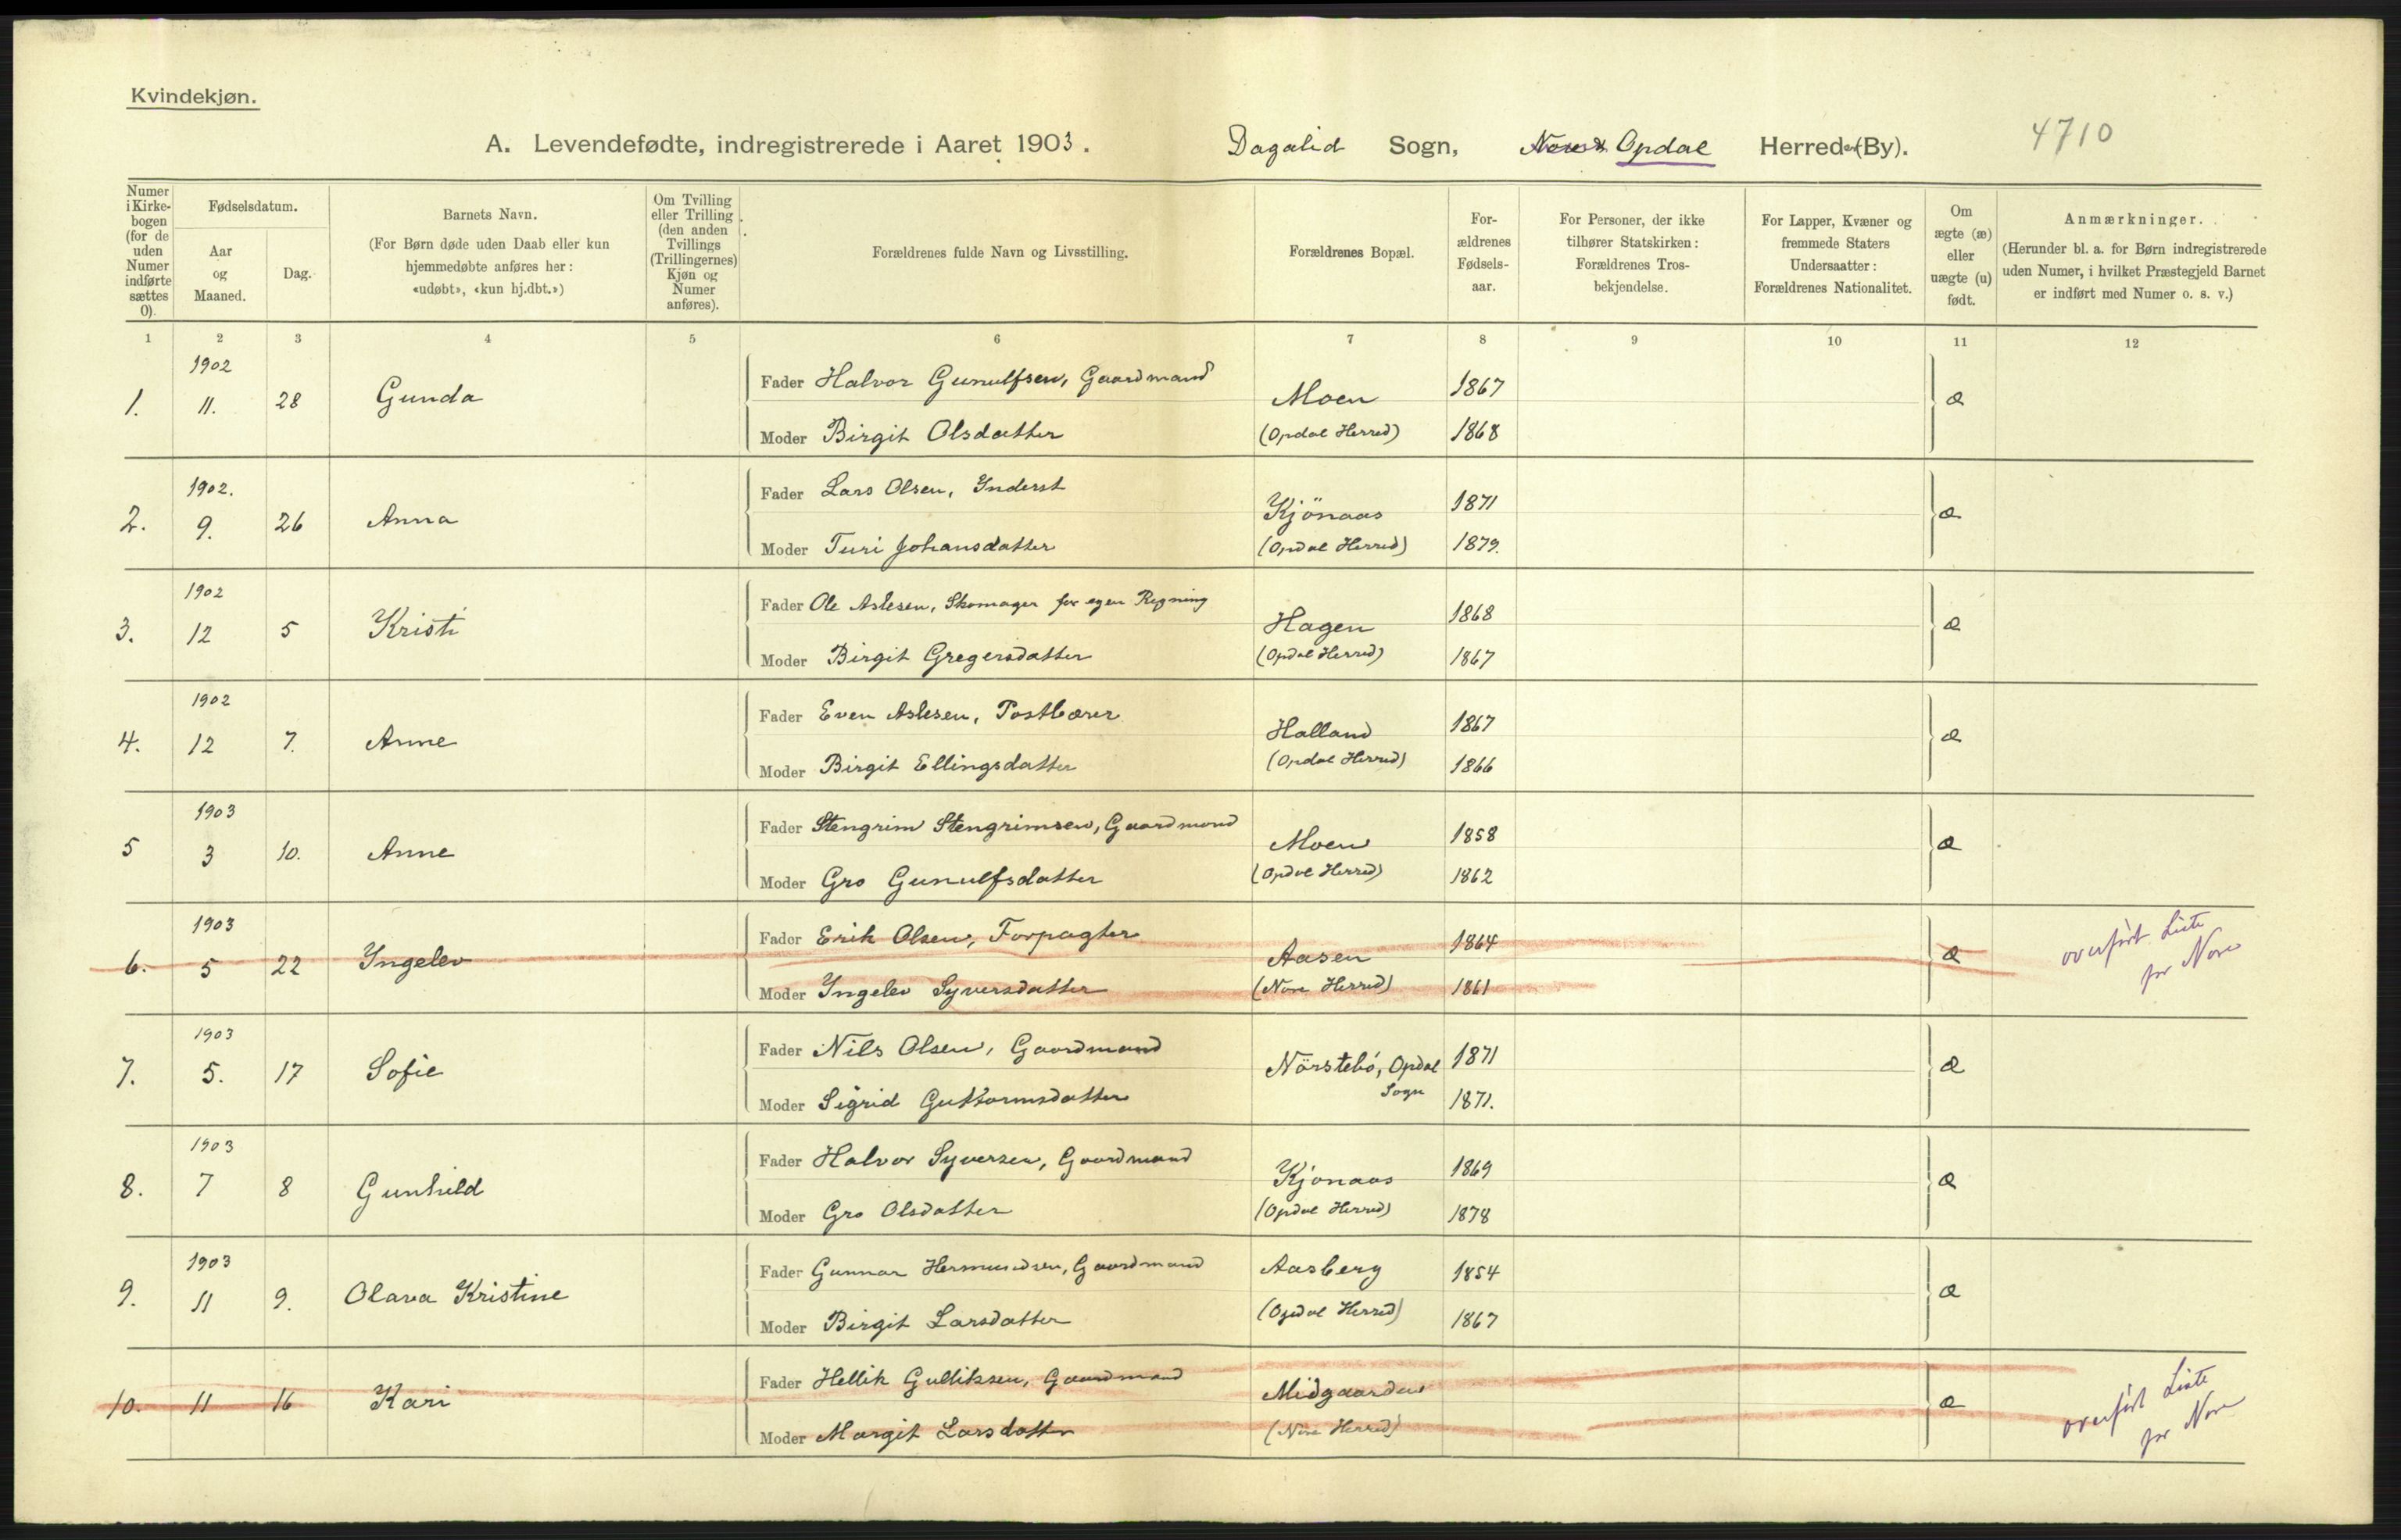 Kvindekjøn.
A. Levendefødte, indregistrerede i Aaret 1903. Dagalid Sogn, Opdal Herred (By). 4710
Numer i Kirkebogen (for de uden Numer indførte sættes 0).
Fødselsdatum.
Aar og Maaned.
Dag.
Barnets Navn.
(For Børn døde uden Daab eller kun hjemmedøbte anføres her: «udøbt», «kun hj.dbt.»)
Om Tvilling eller Trilling (den anden Tvillings (Trillingernes) Kjøn og Numer anføres).
Forældrenes fulde Navn og Livsstilling.
Forældrenes Bopæl.
Forældrenes Fødselsaar.
For Personer, der ikke tilhører Statskirken: Forældrenes Trosbekjendelse.
For Lapper, Kvæner og fremmede Staters Undersaatter: Forældrenes Nationalitet.
Om ægte (æ) eller uægte (u) født.
Anmærkninger.
(Herunder bl. a. for Børn indregistrerede uden Numer, i hvilket Præstegjeld Barnet er indført med Numer o. s. v.)
1 2 3 4 5 6 7 8 9 10 11 12
1902
1. 11. 28 Gunda
Fader Halvor Gunulfsen, Gaardmand Moen 1867 æ
Moder Birgit Olsdatter (Opdal Herred) 1868
1902.
2. 9. 26 Anna
Fader Lars Olsen, Inderst Kjönaas 1871 æ
Moder Turi Johansdatter (Opdal Herred) 1879.
1902
3. 12 5 Kristi
Fader Ole Aslesen, Skomager for egen Regning Hagen 1868 æ
Moder Birgit Gregersdatter (Opdal Herred) 1867
1902
4. 12 7. Anne
Fader Even Aslesen, Postbærer Halland 1867 æ
Moder Birgit Ellingsdatter (Opdal Herred) 1866
1903
5 3 10. Anne
Fader Stengrim Stengrimsen, Gaardmand Moen 1858 æ
Moder Gro Gunulfsdatter (Opdal Herred) 1862
1903
6. 5 22 Ingelev
Fader Erik Olsen, Forpagter Aasen 1864 æ overført Liste for Nore
Moder Ingelev Syversdatter (Nore Herred) 1861
1903
7. 5. 17 Sofie
Fader Nils Olsen, Gaardmand Nörstebö, Opdal Sogn 1871 æ
Moder Sigrid Guttormsdatter 1871.
1903
8. 7 8 Gunhild
Fader Halvor Syversen, Gaardmand Kjönaas 1869 æ
Moder Gro Olsdatter (Opdal Herred) 1878
1903
9. 11 9. Olava Kristine
Fader Gunnar Hermundsen, Gaardmand Aasberg 1854 æ
Moder Birgit Larsdatter (Opdal Herred) 1867
10. 11 16 Kari
Fader Hellik Gulliksen, Gaardmand Midgaarden æ overført Liste for Nore
Moder Margit Larsdatter (Nore Herred)